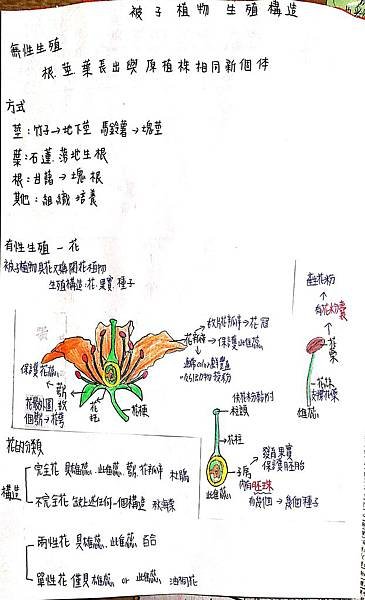 被子植物 生殖構造
無性生殖
根.莖.葉長出與原植株相同新個体
方式
莖:竹子→地下莖 馬鈴薯→塊莖
葉:石蓮.落地生根
根:甘藷→塊根
其他:組織培養
有性生殖-花
被子植物具花又稱開花植物
生殖構造:花.果實.種子
花瓣
數片花瓣→花冠
保護雌雄蕊
保護花蕊
萼片
花萼
花托
花梗
產生花粉
有花粉囊
花藥
花絲
支撐花藥
雄蕊
供花粉黏附
柱頭
花柱
子房
發育果實
保護胚胎
內有胚珠
幾個→幾個種子
雌蕊
花的分類
構造
完全花 具雄蕊.雌蕊.萼.花瓣 杜鵑
不完全花 缺上述任何一個構造 秋海棠
兩性花 具雄蕊.雌蕊 百合
單性花 僅具雄蕊 or 雌蕊